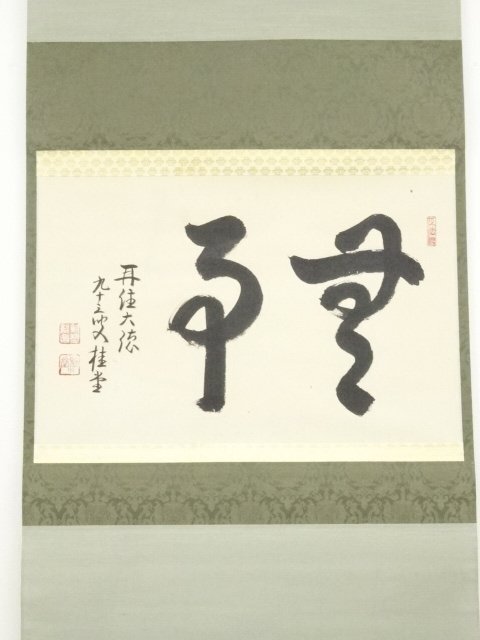 無事
再住大徳
九十三叟桂堂